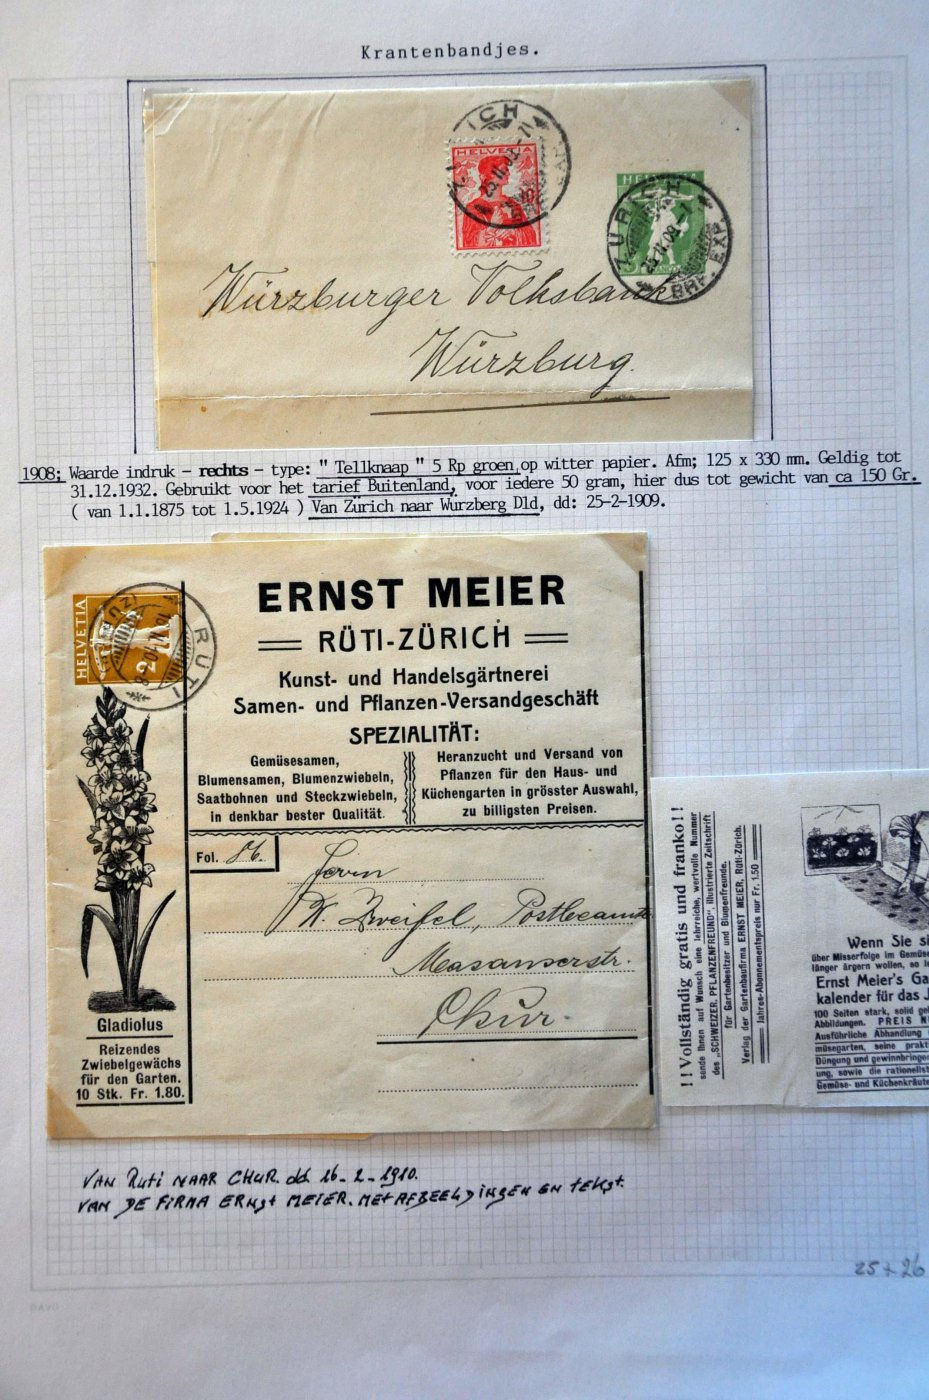 Krantenbandjes.
ZÜRICH
HELVETIA
HELVETIA
ZÜRICH
25.II.09.
BRF. EXP.
5
Würzburger Volksbank
Würzburg.
1908; Waarde indruk - rechts - type: " Tellknaap " 5 Rp groen, op witter papier. Afm; 125 x 330 mm. Geldig tot
31.12.1932. Gebruikt voor het tarief Buitenland, voor iedere 50 gram, hier dus tot gewicht van ca 150 Gr.
( van 1.1.1875 tot 1.5.1924 ) Van Zürich naar Wurzberg Dld, dd: 25-2-1909.
HELVETIA
2
RÜTI
(ZÜRICH)
ERNST MEIER
RÜTI-ZÜRICH
Kunst- und Handelsgärtnerei
Samen- und Pflanzen-Versandgeschäft
SPEZIALITÄT:
Gemüsesamen,
Blumensamen, Blumenzwiebeln,
Saatbohnen und Steckzwiebeln,
in denkbar bester Qualität.
Heranzucht und Versand von
Pflanzen für den Haus- und
Küchengarten in grösster Auswahl,
zu billigsten Preisen.
Fol. 86.
Herrn
W. Zweifel, Postbeamter
Masanserstr.
Chur.
Gladiolus
Reizendes
Zwiebelgewächs
für den Garten.
10 Stk. Fr. 1.80.
!! Vollständig gratis und franko !!
sende Ihnen auf Wunsch eine lehrreiche, wertvolle Nummer
des „SCHWEIZER. PFLANZENFREUND", illustrierte Zeitschrift
für Gartenbesitzer und Blumenfreunde.
Verlag der Gartenbaufirma ERNST MEIER, Rüti-Zürich.
Jahres-Abonnementspreis nur Fr. 1.50
Wenn Sie si
über Misserfolge im Gemüse
länger ärgern wollen, so l
Ernst Meier's Ga
kalender für das J
100 Seiten stark, solid ge
Abbildungen. PREIS N
Ausführliche Abhandlung
müsegarten, seine prakt
Düngung und gewinnbringen
ung, sowie die rationellst
Gemüse- und Küchenkräute
VAN Ruti NAAR CHUR. dd 16-2-1910.
VAN DE FIRMA ERNST MEIER. MET AFBEELDINGEN EN TEKST.
25+26
DAVO